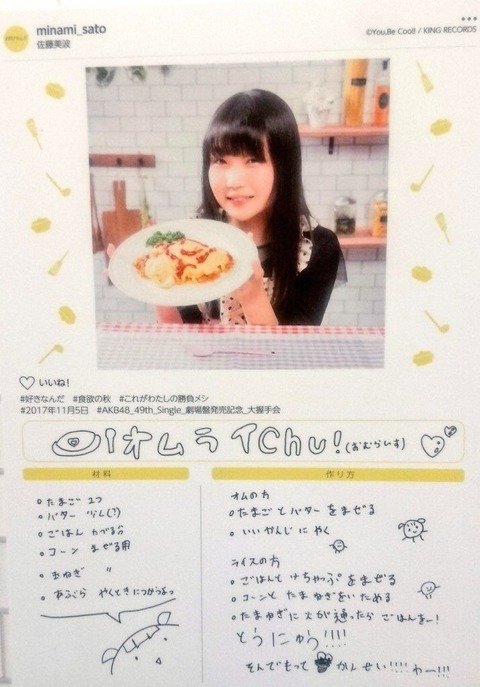 minami_sato
佐藤美波
©You,Be Cool! / KING RECORDS
いいね!
#好きなんだ #食欲の秋 #これがわたしの勝負メシ
#2017年11月5日 #AKB48_49th_Single_劇場盤発売記念_大握手会
オムライChu!(おむらいす)
材料
作り方
たまご 2つ
バター 少し(?)
ごはん たべる分
コーン まぜる用
玉ねぎ 〃
あぶら やくときにつかうよっ
オムの方
たまごとバターをまぜる
いいかんじにやく
ライスの方
ごはんとけちゃっぷをまぜる
コーンとたまねぎをいためる
たまねぎに火が通ったらごはんをー!
とうにゅう!!!!
そんでもって かんせい!!!!わー!!!